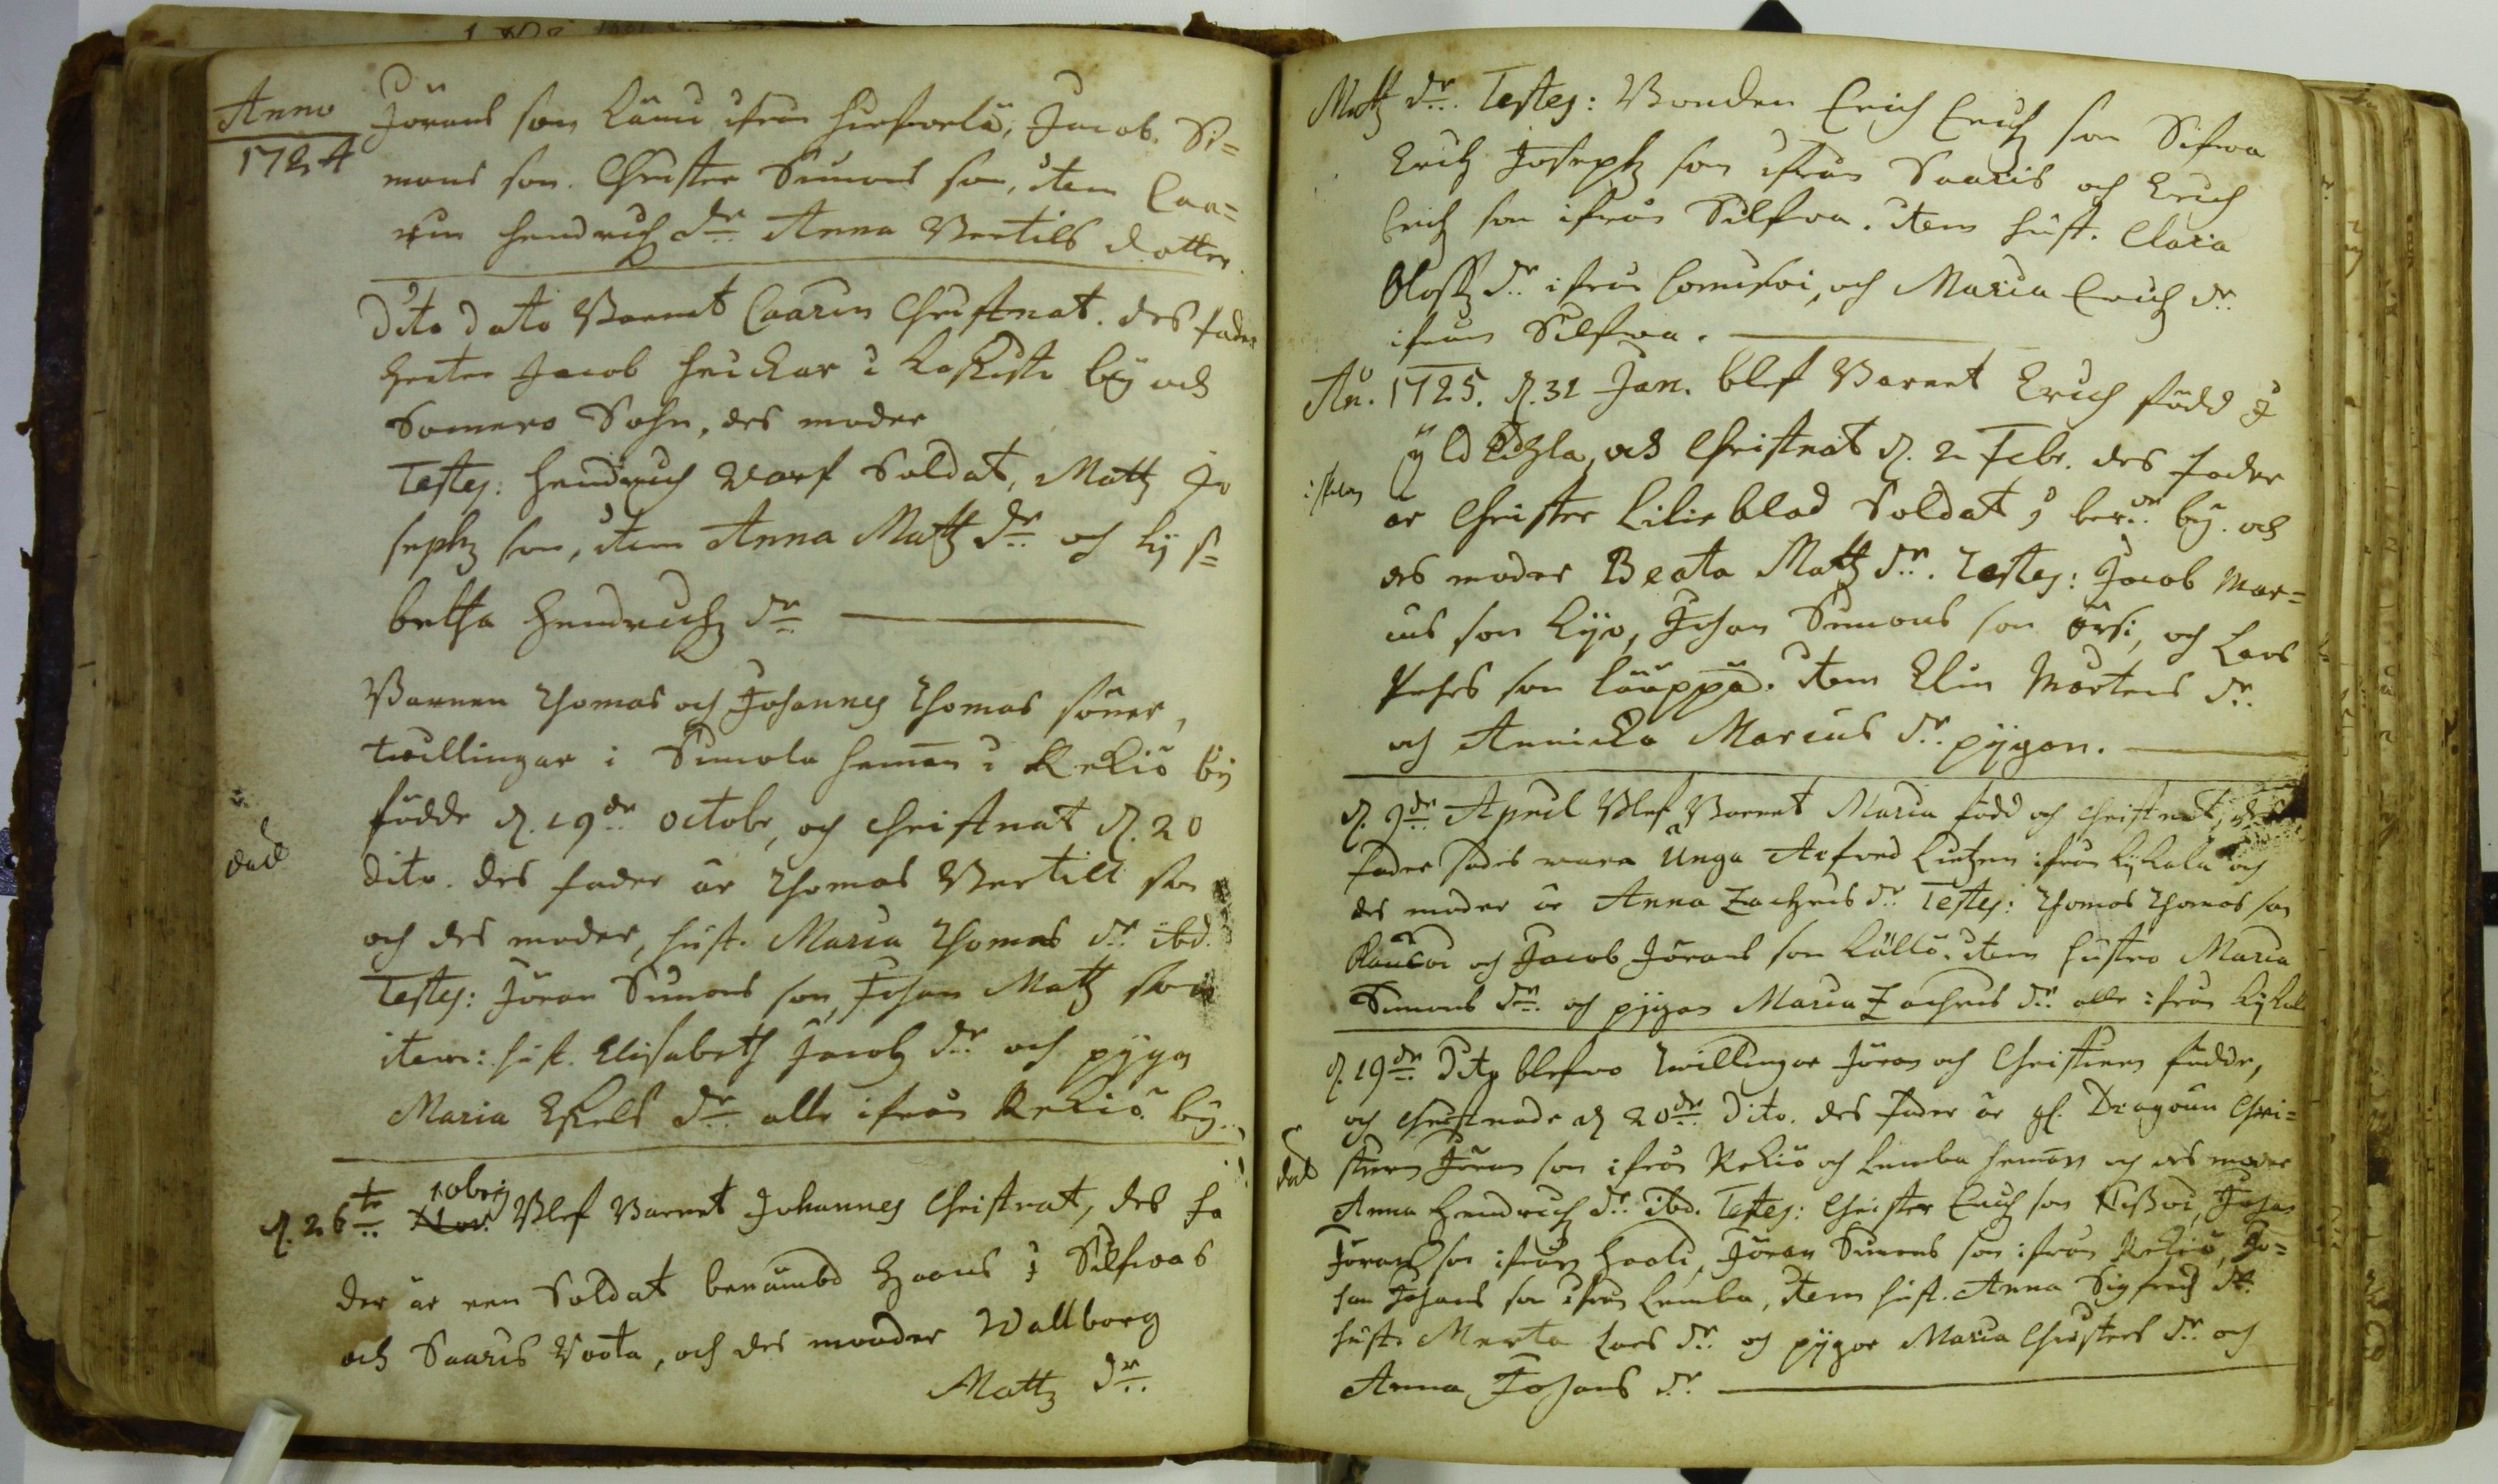 Anno
1724
Jörans son Lämi ifrån Hirsvelä, Jacob. Si=
mons son. Christer Simons son, item Caa=
rin Hendrich dr. Anna Bertils dotter.
Dito dato Barnet Caarin Christnat. des fader
heeter Jacob Heickar i Laskista by och
Somero Sohn, des moder
Testes: Hendrich Warf Soldat, Matz Jo
sephz son, item Anna Matz dr. och Lijs=
betha Hendrichz dr.
Barnen Thomas och Johannes Thomas söner,
twillingar i Simola heman i Rekiö by
födde d. 19de octobr, och Christnat d. 20
död
dito. des fader är Thomas Bertill son
och des moder, hust. Maria Thomas dr. ibd.
Testes: Jöran Simons son, Johan Matz son
item: hust. Elisabeth Jacobz dr. och pygan
Maria Eskels dr. alle ifrån Rekiö by.
d. 26te 10bris Blef Barnet Johannes Christnat, des fa
der är een Soldat benämbd Haans i Silfwas
och Saaris Roota, och des mooder Wallborg
Mattz dr.
Matz dr. Testes: Bonden Erich Erichz son Silfwa
Erich Josephz son ifrån Saaris och Erich
Erichz son ifrån Silfwa. item hust. Claria
Oloffz dr. ifrån, och Maria Erichz dr.
ifrån Silfwa.
An. 1725. d. 31 Jan. blef Barnet Erich född i
och Christnat d. 2 Febr. des fader
är Christer Lilieblad Soldat i ber.de by. och
des moder Beata Matz dr. Testes: Jacob Mar=
cus son Kijo, Johan Simons son Örsi, och Lars
Pehrs son Lääppä. item Elin Mårtens dr.
och Annicka Marcus dr. pygan.
d. 9de April Blef Barnet Maria född och Christnat, des
fader sades wara Unga Axfred Lietzen ifrån Kijkala och
des moder är Anna Zachris dr. Testes: Thomas Thomas son
och Jacob Jörans son Källö. item hustro Maria
Simons dr. och pygan Maria Zachris dr. alle ifrån Kijkala
d. 19de Dito blefwo Twillingar Jöran och Christiern födde,
och Christnade d. 20de dito. des fader är gl. Dragoun Chri=
död
stiern Jörans son ifrån Rekiö och Lemba heman och des moder
Anna Hendrichz dr. ibd. Testes: Christer Erichz son, Johan
Jörans son ifrån Haali, Jöran Simons son ifrån Rekiö, Jo=
han Johans son ifrån Lemba, item hust. Anna Sigfredz dr.
hust. Merta Lars dr. och pygor Maria Christers dr. och
Anna Johans dr.